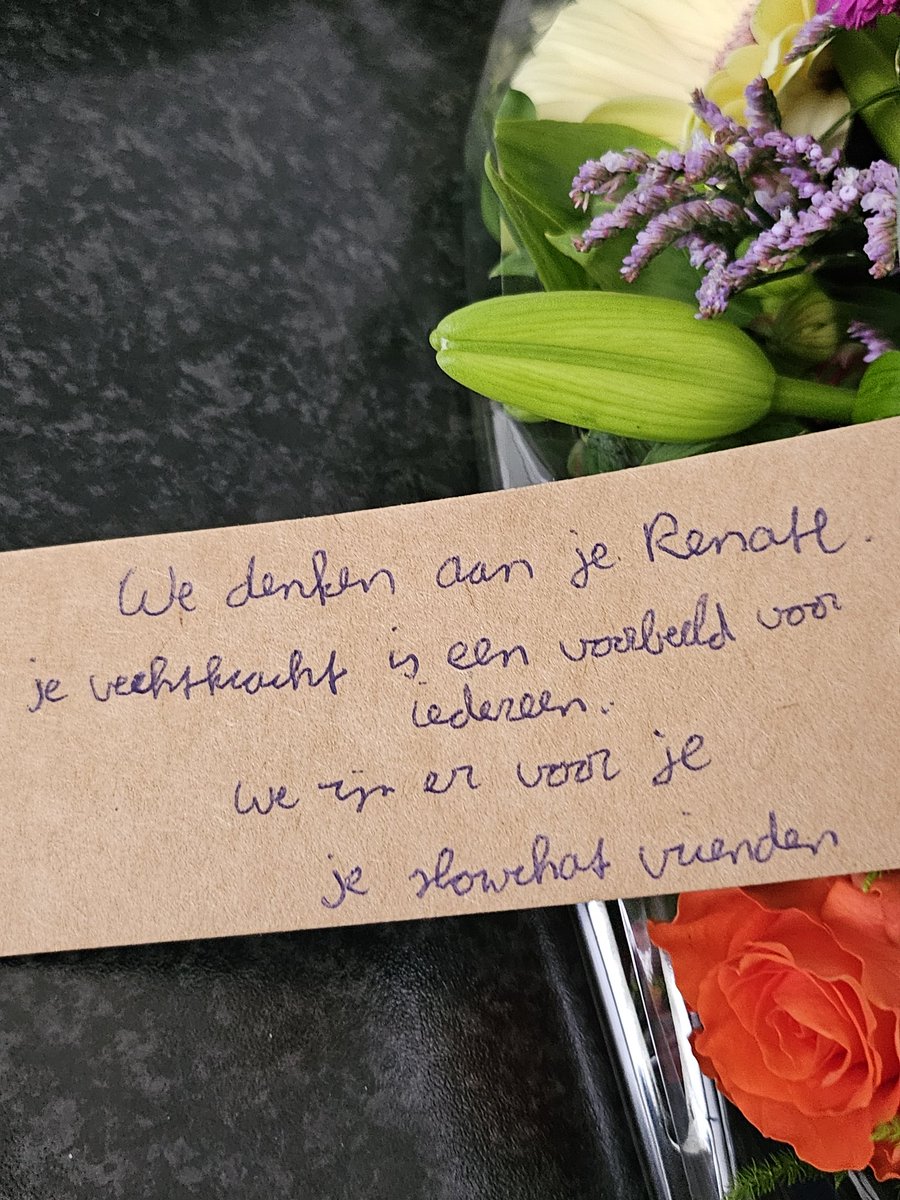 We denken aan je Renate.
je vechtkracht is een voorbeeld voor
iedereen.
We zijn er voor je
je slowchat vrienden